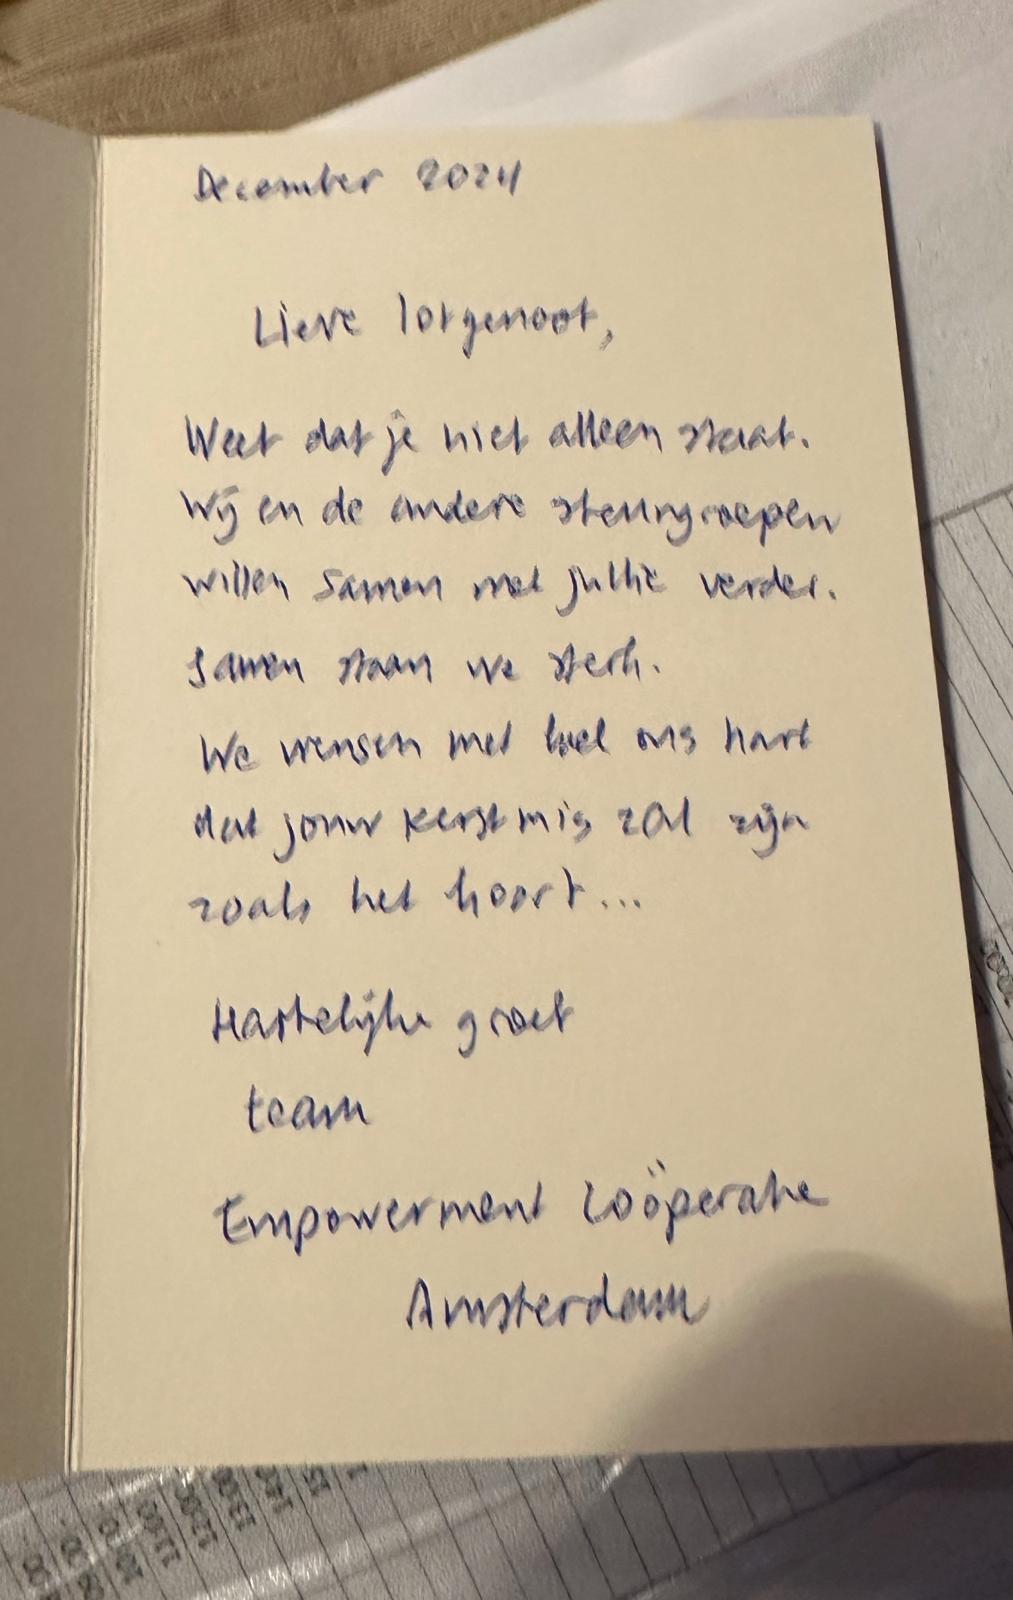 December 2024
Lieve lotgenoot,
Weet dat je niet alleen staat.
Wij en de andere steungroepen
willen samen met jullie verder.
Samen staan we sterk.
We wensen met heel ons hart
dat jouw kerstmis zal zijn
zoals het hoort...
Hartelijke groet
team
Empowerment Coöperatie
Amsterdam